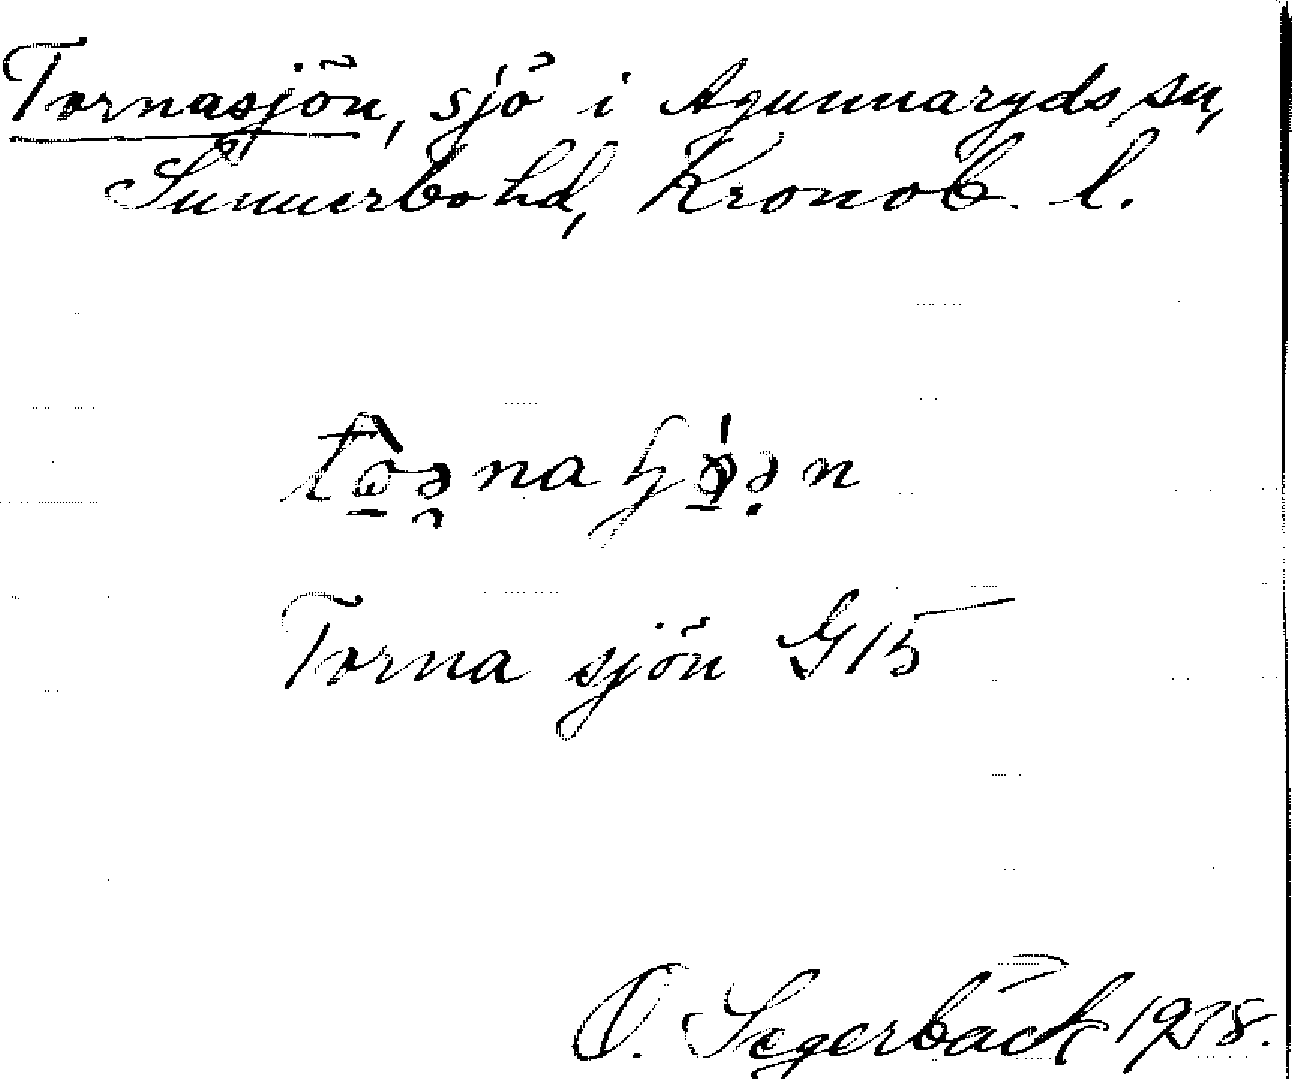 Tornasjön, sjö i Agunnaryds sn,
Sunnerbo hd, Kronob. l.
Torna sjön G15
O. Segerbäck 1918.